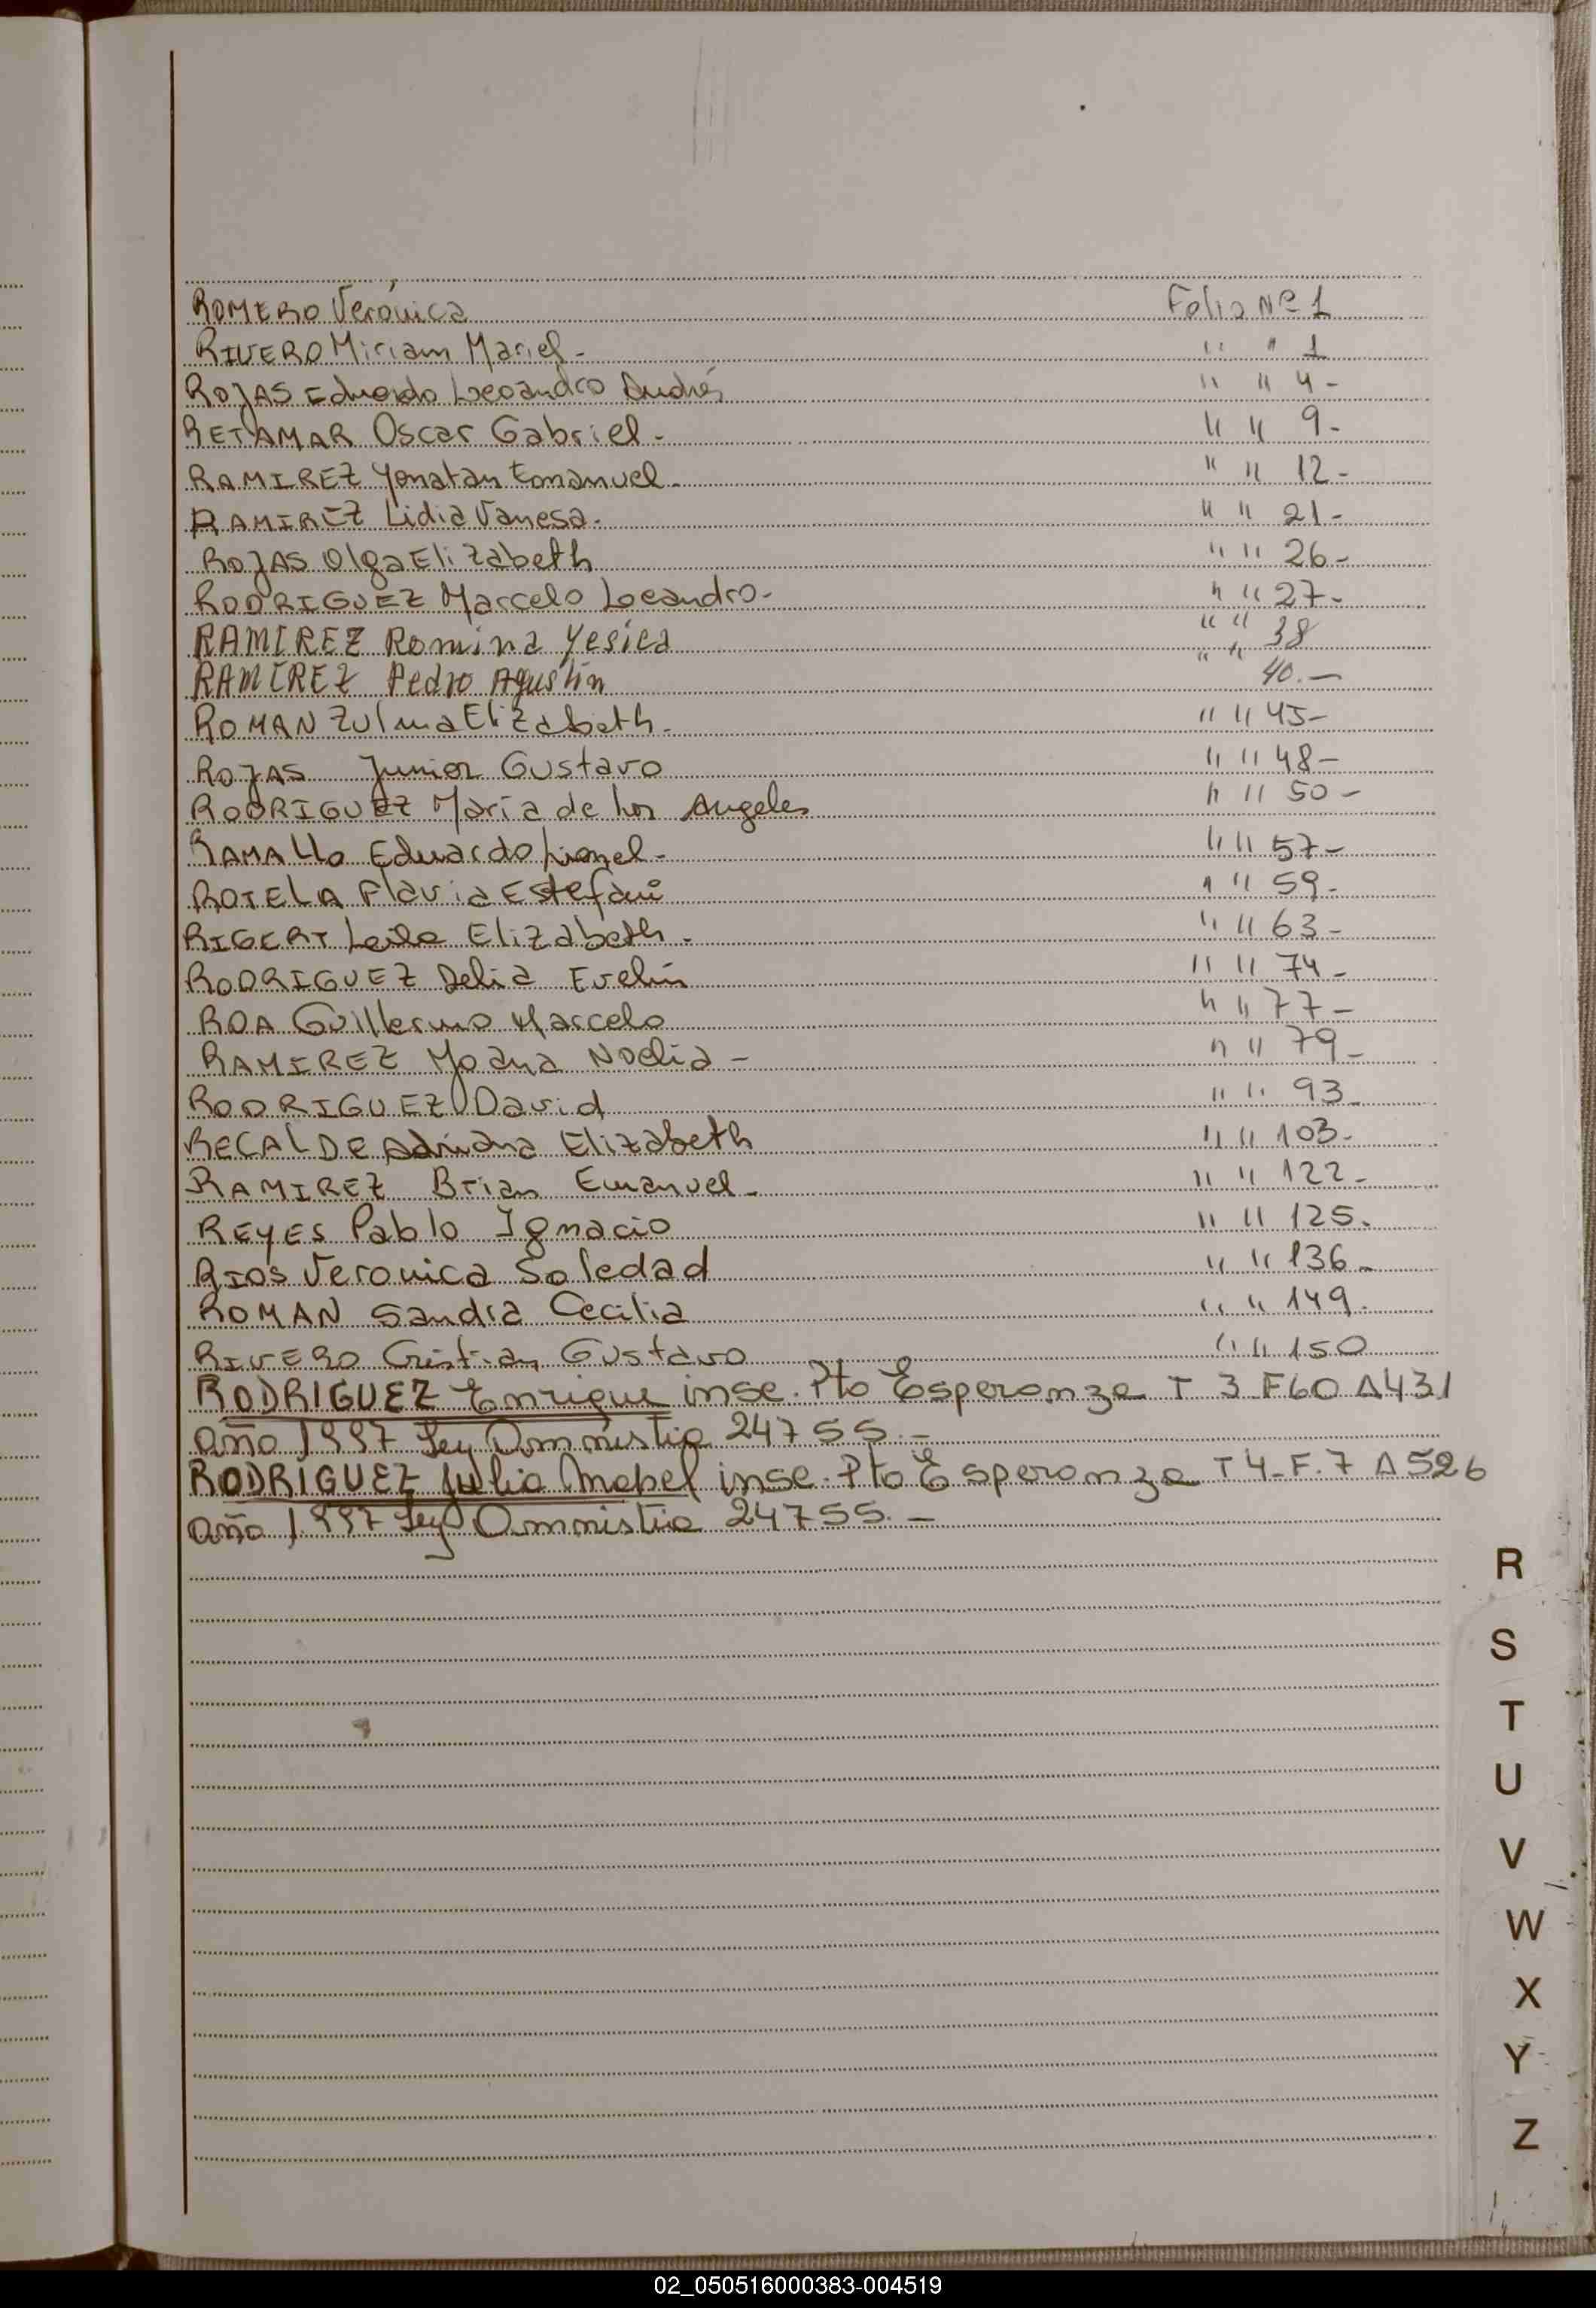 ROMERO Verónica Folio Nº 1
RIVERO Miriam Mariel - " " 1
ROJAS Eduardo Leoandro Andrés " " 4 -
RETAMAR Oscar Gabriel - " " 9 -
RAMIREZ Yonatan Emanuel - " " 12 -
RAMIREZ Lidia Vanesa. " " 21 -
ROJAS Olga Elizabeth " " 26 -
RODRIGUEZ Marcelo Leandro - " " 27 -
RAMIREZ Romina Yesica " " 38
RAMIREZ Pedro Agustín " " 40. -
ROMAN Zulma Elizabeth - " " 45 -
ROJAS Junior Gustavo " " 48 -
RODRIGUEZ María de los Angeles " " 50 -
RAMALLO Eduardo Lionel - " " 57 -
ROTELA Flavia Estefani " " 59 -
RIGERT Leila Elizabeth - " " 63 -
RODRIGUEZ Delia Evelin " " 74 -
ROA Guillermo Marcelo " " 77 -
RAMIREZ Yoana Noelia - " " 79 -
RODRIGUEZ David " " 93 -
RECALDE Adriana Elizabeth " " 103 -
RAMIREZ Brian Emanuel - " " 122 -
REYES Pablo Ignacio " " 125.
RIOS Veronica Soledad " " 136 -
ROMAN Sandra Cecilia " " 149.
RIVERO Cristian Gustavo " " 150
RODRIGUEZ Enrique insc. Pto Esperanza T 3 F60 A431
año 1997 Ley Amnistia 24755. -
RODRÍGUEZ Julia Mabel insc. Pto Esperanza T 4 - F. 7 A 526
año 1997 Ley Amnistia 24755. -
R
S
T
U
V
W
X
Y
Z
02_050516000383-004519